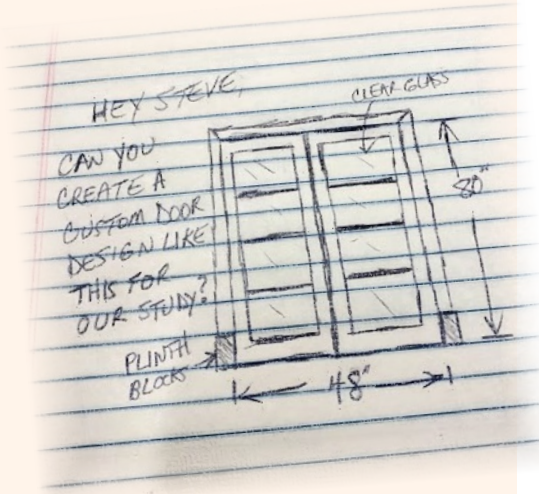 HEY STEVE,
CAN YOU
CREATE A
CUSTOM DOOR
DESIGN LIKE
THIS FOR
OUR STUDY?
CLEAR GLASS
80"
PLINTH
BLOCKS
48"